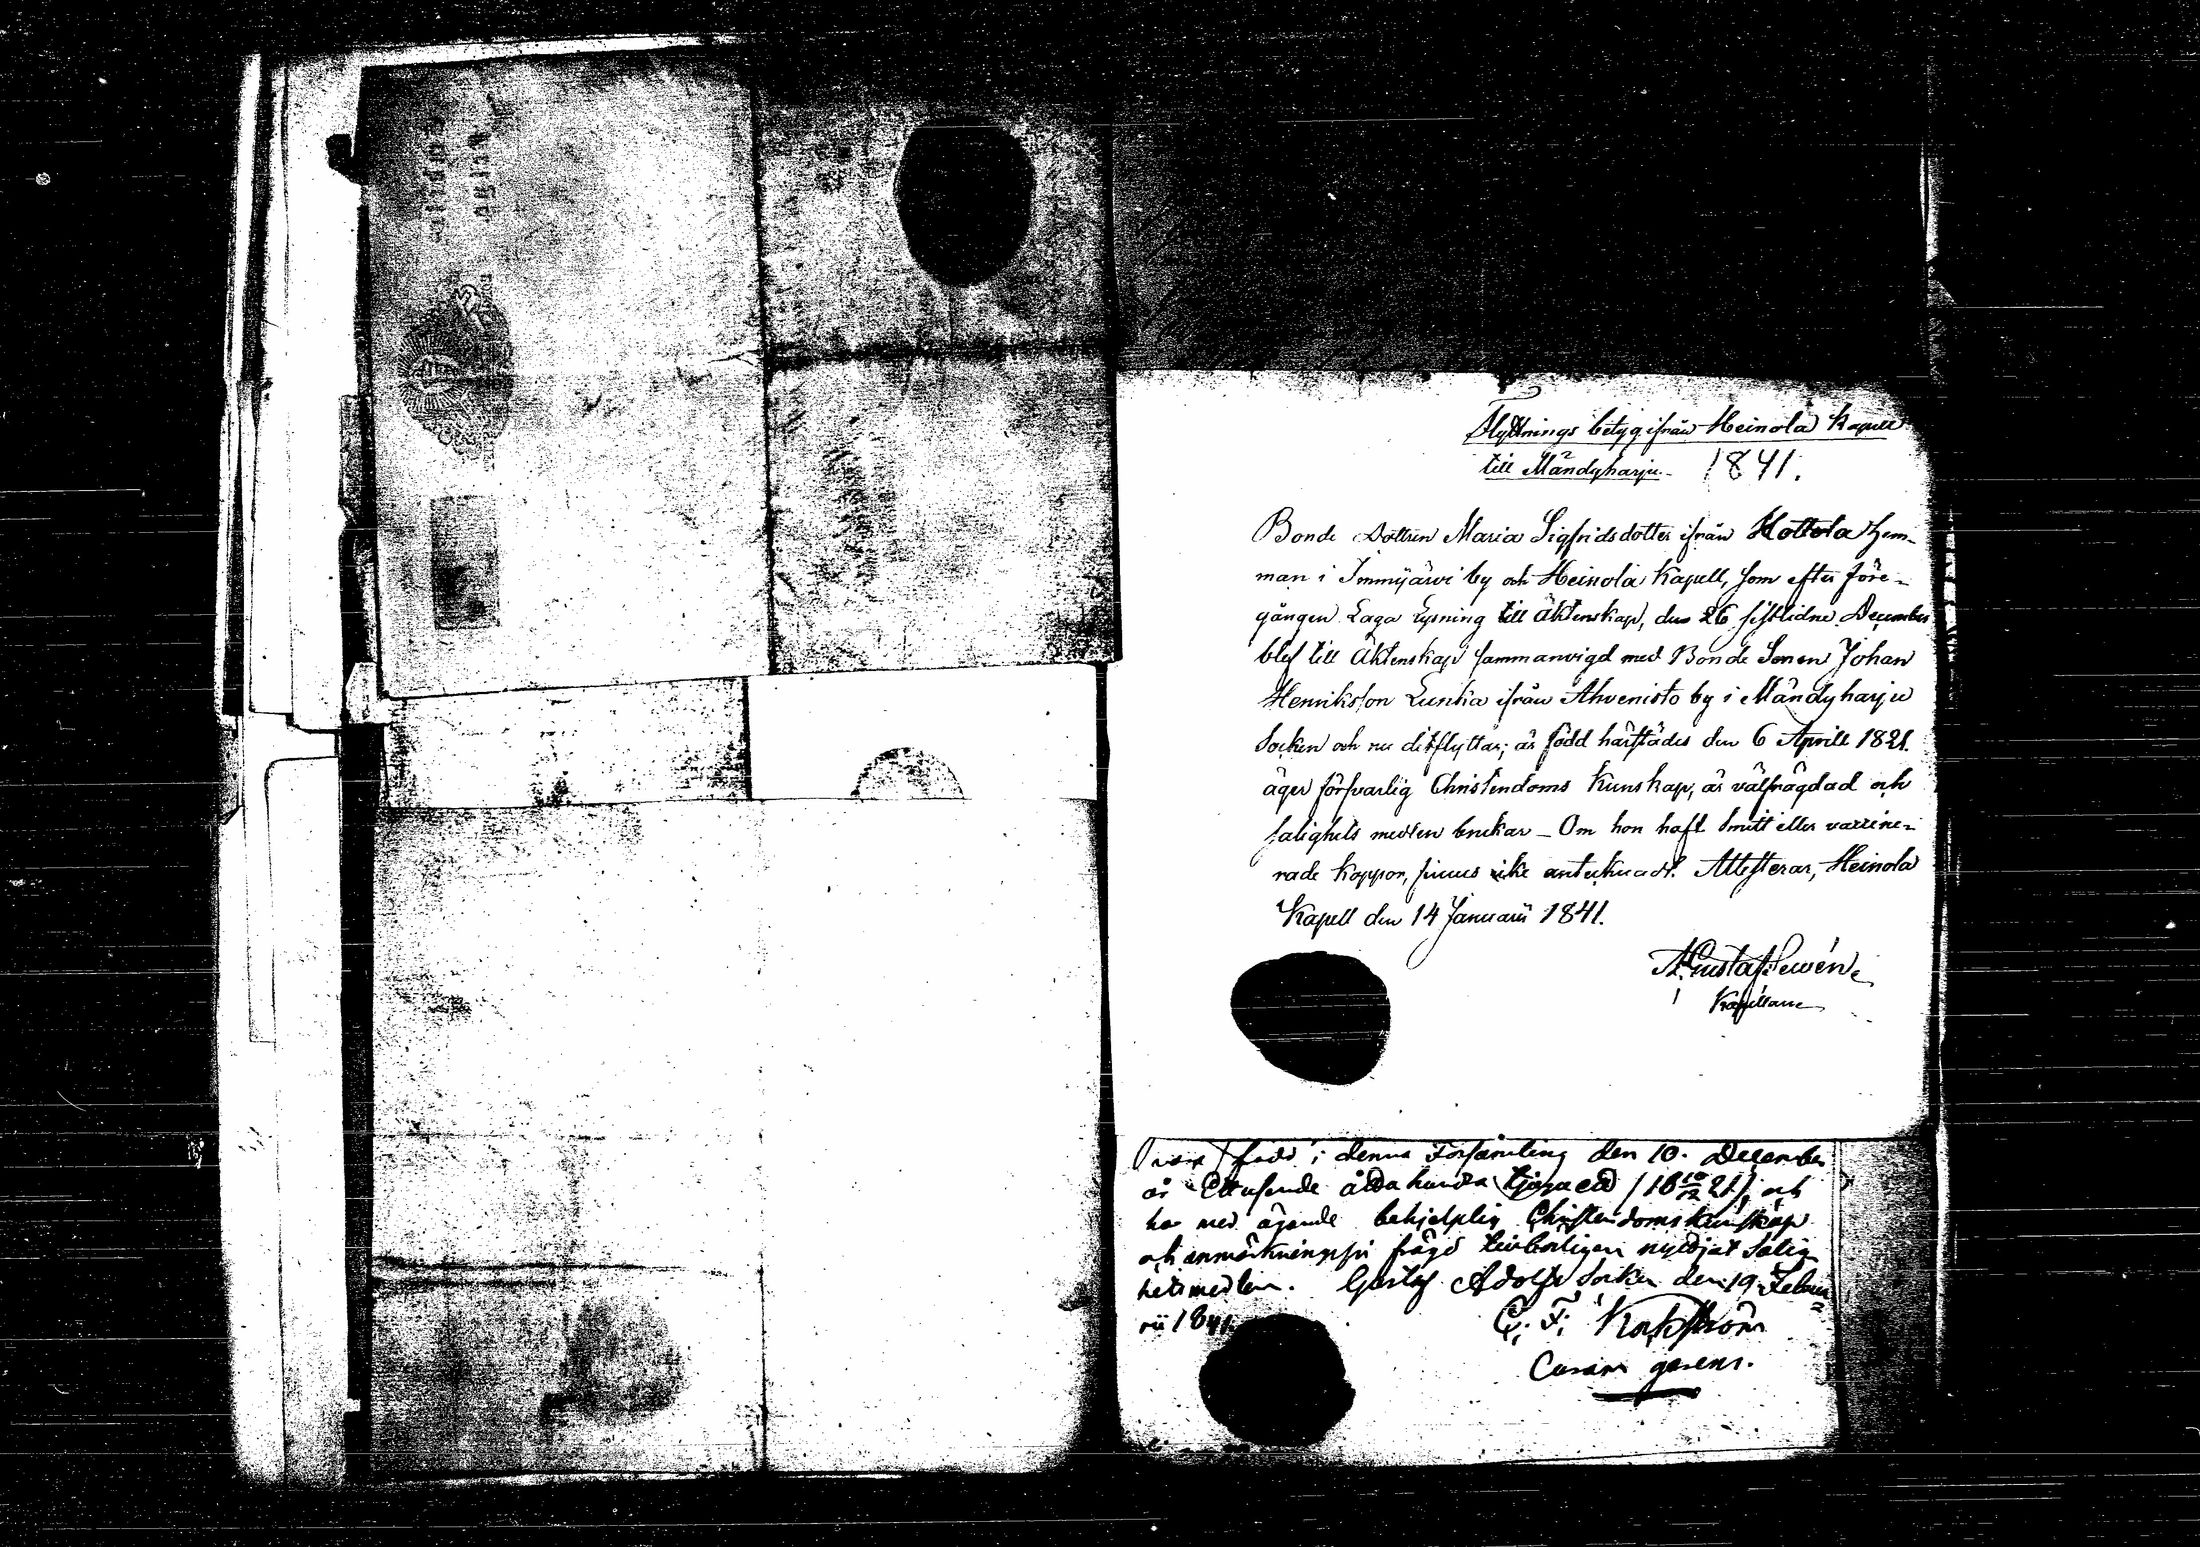 Flyttnings betyg ifrån Heinola Kapell
till Mändyharju. 1841.
Bonde Dottren Maria Sigfridsdotter ifrån Kottola Hem-
man i Immijärvi by och Heinola Kapell, som efter före-
gången Laga Lysning till Äktenskap, den 26 sistlidne December
blef till Äktenskap sammanvigd med Bonde Sonen Johan
Henriksson Lunka ifrån Ahvenisto by i Mändyharju
Socken och nu ditflyttar; är född härstädes den 6 Aprill 1821.
äger försvarlig Christendoms Kunskap, är välfrägdad och
salighets medlen brukar – Om hon haft Smitt eller vaccine-
rade koppor, finnes icke antecknadt. Attesterar, Heinola
Kapell den 14 Januarii 1841.
Gustaf
Kapellane
född i denna Församling den 10. December
år Ettusende åttahundra tjuguett (18 10/12 21), och
har med ägande behjelplig Christendomskunskap
och anmärkningsfri frägd tillbörligen nyttjat Salig
hetsmedlen. Gustaf Adolfs Socken den 19 Februa
rii 1841.
C. F.
Curam gerens.